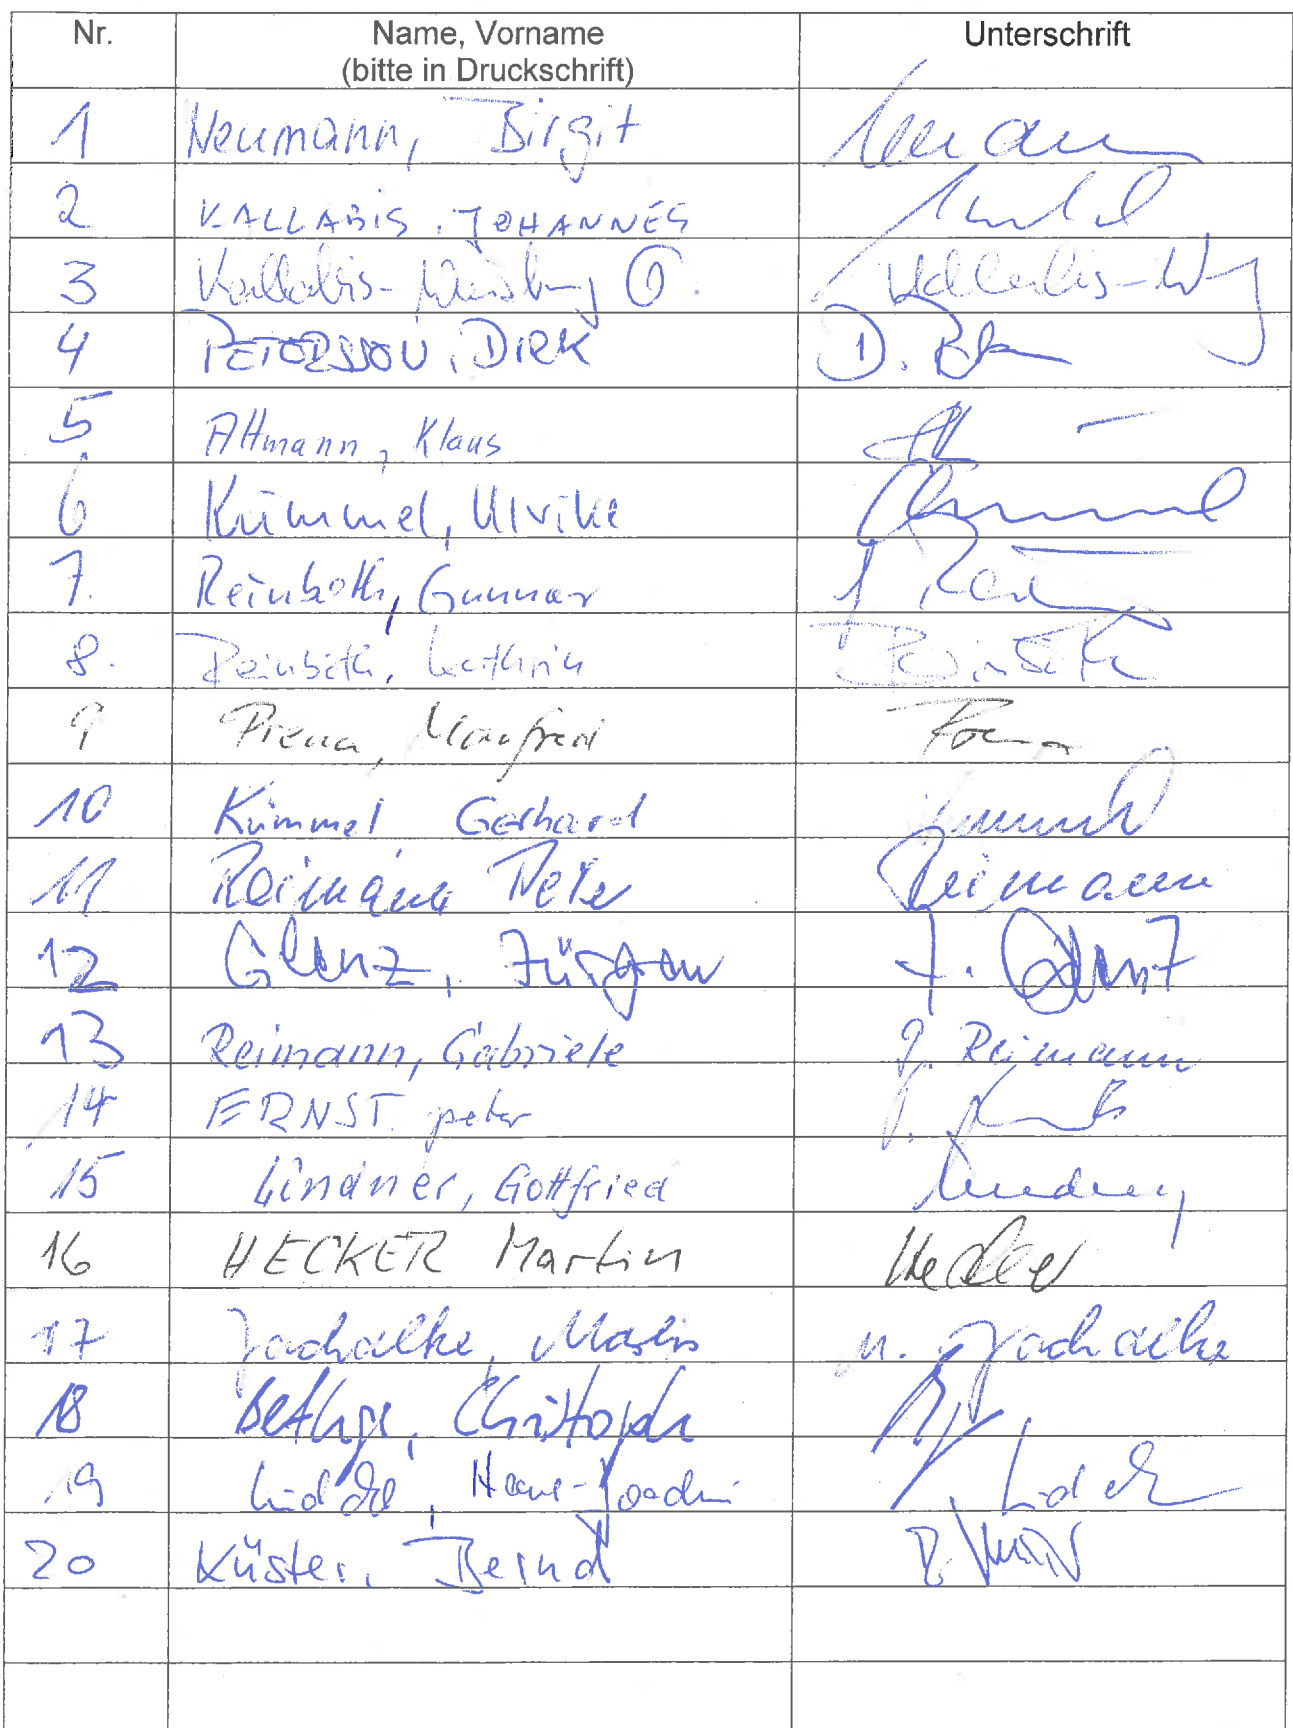 Nr. Name, Vorname Unterschrift
(bitte in Druckschrift)
1 Neumann, Birgit
2 KALLABIS, JOHANNES
3 Kallabis- Kallabis-
4 PETERSSON, DIRK D.
5 Altmann, Klaus
6 Kümmel, Ulrike
7. Reinboth, Gunnar
8. Reinboth, Kathrin Reinboth
9 Manfred
10 Kümmel Gerhard Kümmel
11 Reimann Peter Reimann
12 Glanz, Jürgen J. Glanz
13 Reimann, Gabriele G. Reimann
14 ERNST peter
15 Lindner, Gottfried Lindner
16 HECKER Martin Hecker
17 Jachalke, M. Jachalke
18 Bethge, Christoph
19 Hans-Joachim
20 Küster, Bernd